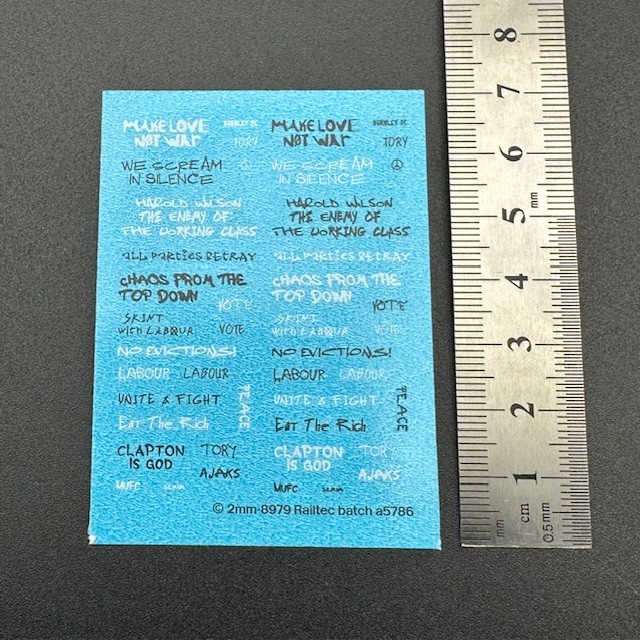 MAKE LOVE
NOT WAR
BURNLEY FC
TORY
WE SCREAM
IN SILENCE
HAROLD WILSON
THE ENEMY OF
THE WORKING CLASS
ALL PARTIES BETRAY
CHAOS FROM THE
TOP DOWN
VOTE
SKINT
with LABOUR
VOTE
NO EVICTIONS!
LABOUR LABOUR
UNITE & FIGHT
PEACE
Eat The Rich
CLAPTON
IS GOD
TORY
AJAKS
MUFC
MAKE LOVE
NOT WAR
BURNLEY FC
TORY
WE SCREAM
IN SILENCE
HAROLD WILSON
THE ENEMY OF
THE WORKING CLASS
ALL PARTIES BETRAY
CHAOS FROM THE
TOP DOWN
VOTE
SKINT
with LABOUR
VOTE
NO EVICTIONS!
LABOUR LABOUR
UNITE & FIGHT
PEACE
Eat The Rich
CLAPTON
IS GOD
TORY
AJAKS
MUFC
© 2mm-8979 Railtec batch a5786
8
7
6
5
mm
4
3
2
1
cm
mm
0.5mm